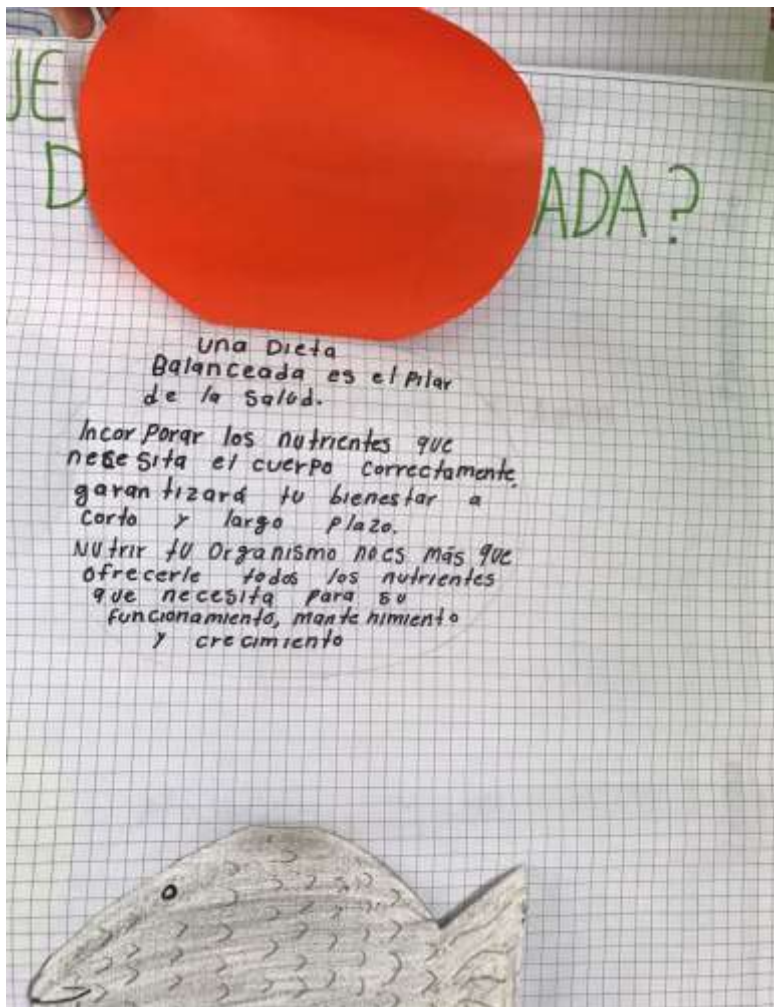 UE
D ADA?
una Dieta
Balanceada es el Pilar
de la Salud.
Incorporar los nutrientes que
necesita el cuerpo correctamente,
garantizará tu bienestar a
corto y largo plazo.
Nutrir tu Organismo no es más que
ofrecerle todos los nutrientes
que necesita para su
funcionamiento, mantenimiento
y crecimiento